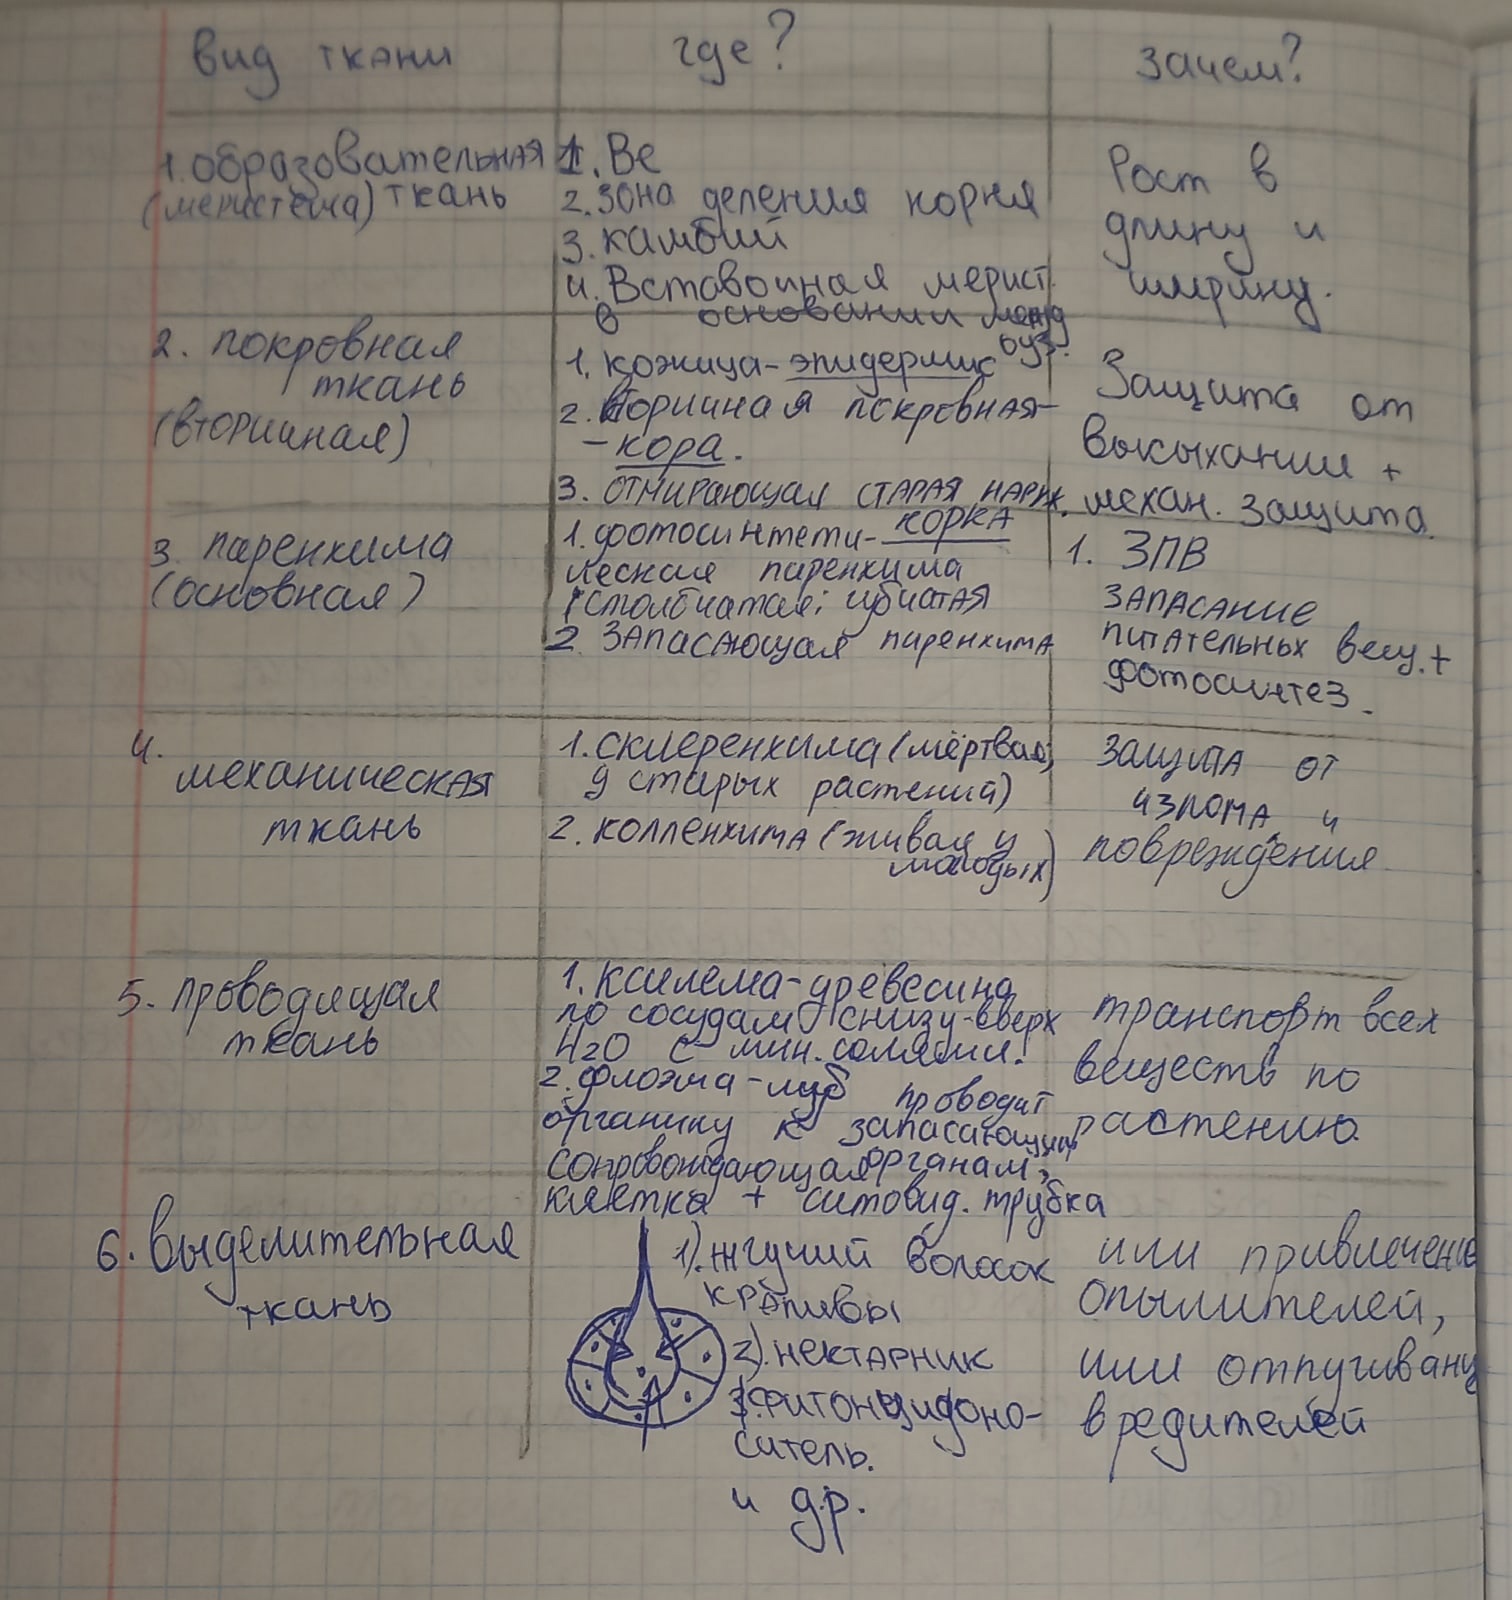 вид ткани
где?
зачем?
1. образовательная
(меристема) ткань
1. Ве
2. зона деления корня
3. камбий
4. Вставочная мерист.
в основании межд
оуз.
Рост в
длину и
ширину.
2. покровная
ткань
(вторичная)
1. кожица-эпидермис
2. вторичная покровная-
- кора.
3. отмирающая старая нарж.
корка
Защита от
высыхании +
механ. защита.
3. паренхима
(основная)
1. фотосинтети-
ческая паренхима
(столбчатая; губчатая
2. запасающая паренхима
1. ЗПВ
запасание
питательных вещ. +
фотосинтез.
4.
механическая
ткань
1. склеренхима (мёртвая,
у старых растений)
2. колленхима (живая у
молодых)
защита от
излома и
повреждения
5. проводящая
ткань
1. ксилема-древесина
по сосудам снизу-вверх
H2O с мин. солями.
2. флоэма-луб проводит
органику к запасающим
органам;
сопровождающая
клетка + ситовид. трубка
транспорт всех
веществ по
растению.
6. выделительная
ткань
1). жгучий волосок
крапивы
2). нектарник
3. фитонцидоно-
ситель.
и др.
или привлечение
опылителей,
или отпугивани
вредителей